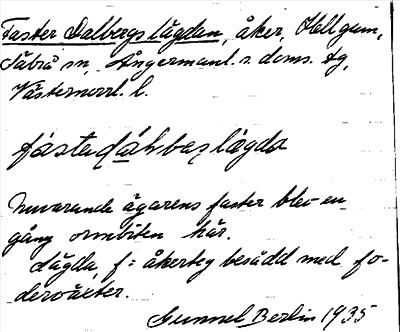 Faster Dalbergslägdan, åker, Hällgum,
Säbrå sn, Ångermanl. s. doms. tg,
Västernorrl. l.
fàstedáḷbaṣlägda
Nuvarande ägarens faster blev en
gång ormbiten här.
lägda, f = åkerteg besådd med fo-
derväxter.
Gunnel Berlin 1935